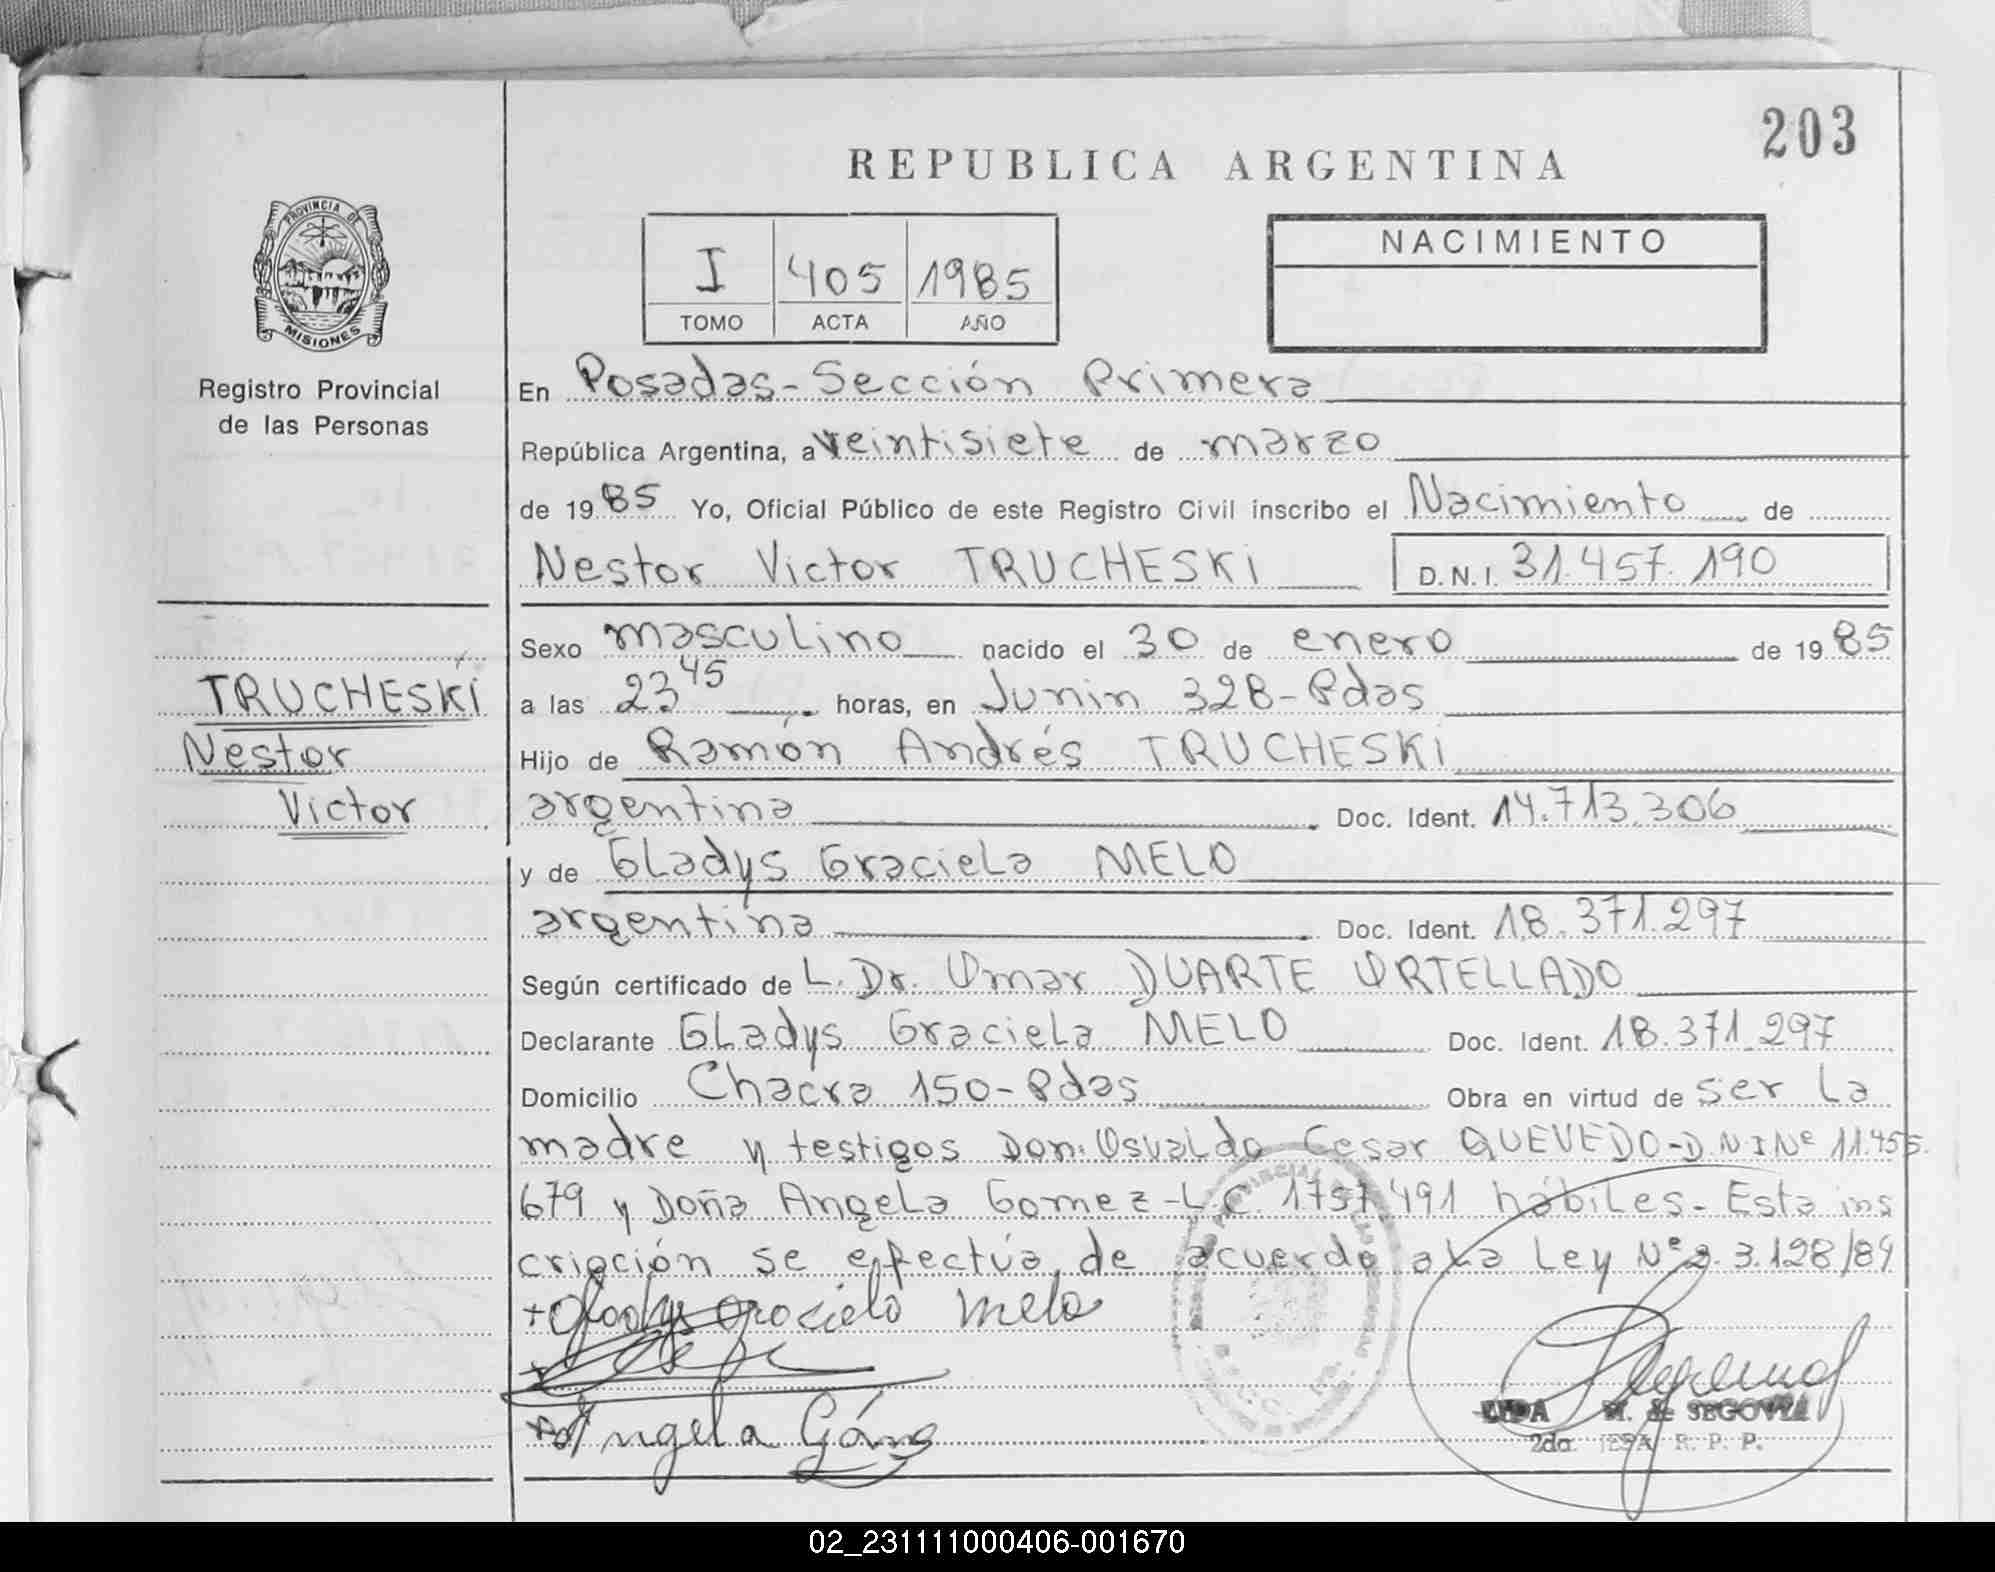 203
REPUBLICA ARGENTINA
PROVINCIA DE
MISIONES
Registro Provincial
de las Personas
I 405 1985
TOMO ACTA AÑO
NACIMIENTO
En Posadas-Sección Primera
República Argentina, a veintisiete de marzo
de 1985 Yo, Oficial Público de este Registro Civil inscribo el Nacimiento de
Nestor Victor TRUCHESKI D.N.I. 31.457.190
Sexo masculino nacido el 30 de enero de 1985
TRUCHESKI
Nestor
Victor
a las 23 45 horas, en Junin 328-Pdas
Hijo de Ramón Andrés TRUCHESKI
argentina Doc. Ident. 14.713.306
y de Gladys Graciela MELO
argentina Doc. Ident. 18.371.297
Según certificado de L. Dr. Omar DUARTE ORTELLADO
Declarante Gladys Graciela MELO Doc. Ident. 18.371.297
Domicilio Chacra 150-Pdas Obra en virtud de ser la
madre y testigos Don: Osvaldo Cesar QUEVEDO-D.N.I Nº 11.455.
679 y Doña Angela Gomez-L.C. 1757.491 hábiles. Esta ins
cripción se efectúa de acuerdo a la Ley Nº 2.3.128/84
+Gladys Graciela Melo
+Angela Gómez
M. de SEGOVIA
2da. JEFA R. P. P.
02_231111000406-001670